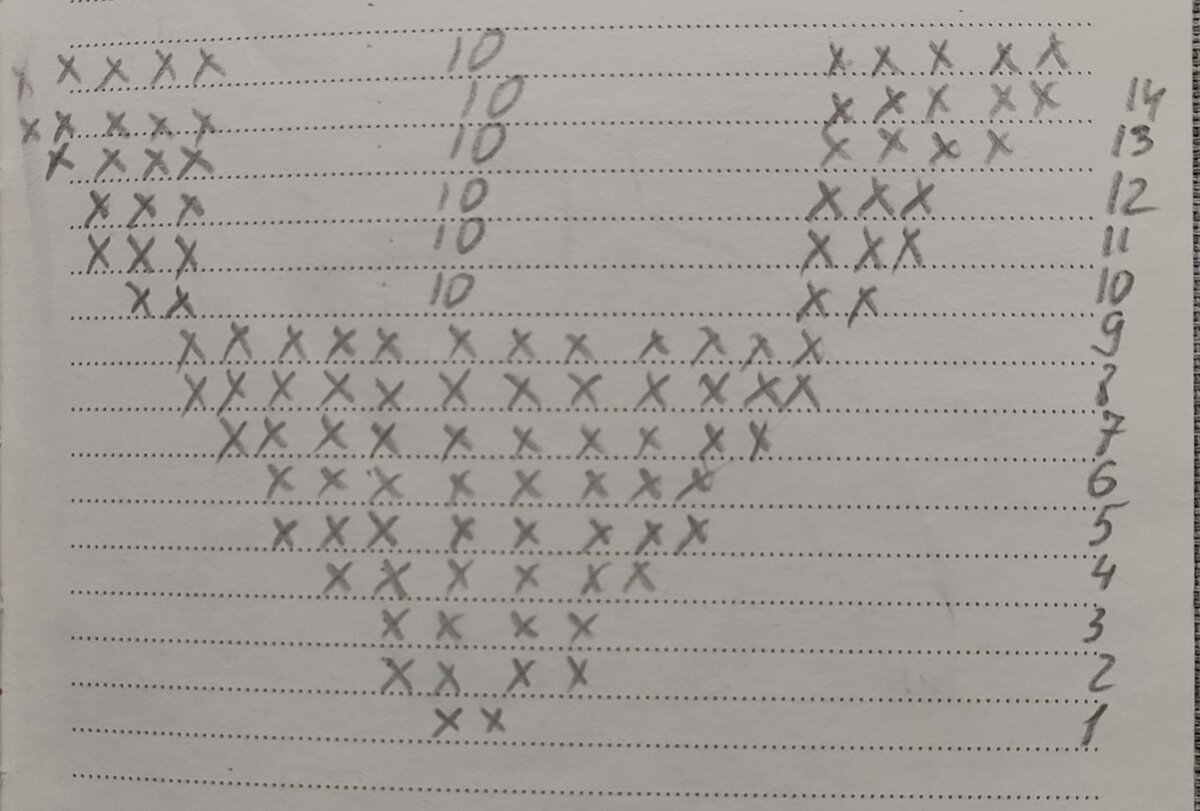 x x x x x 10 x x x x x
x x x x x 10 x x x x x 14
x x x x 10 x x x x 13
x x x 10 x x x 12
x x x 10 x x x 11
x x 10 x x 10
x x x x x x x x x x x x 9
x x x x x x x x x x x x 8
x x x x x x x x x x 7
x x x x x x x x 6
x x x x x x x x 5
x x x x x x 4
x x x x 3
x x x x 2
x x 1